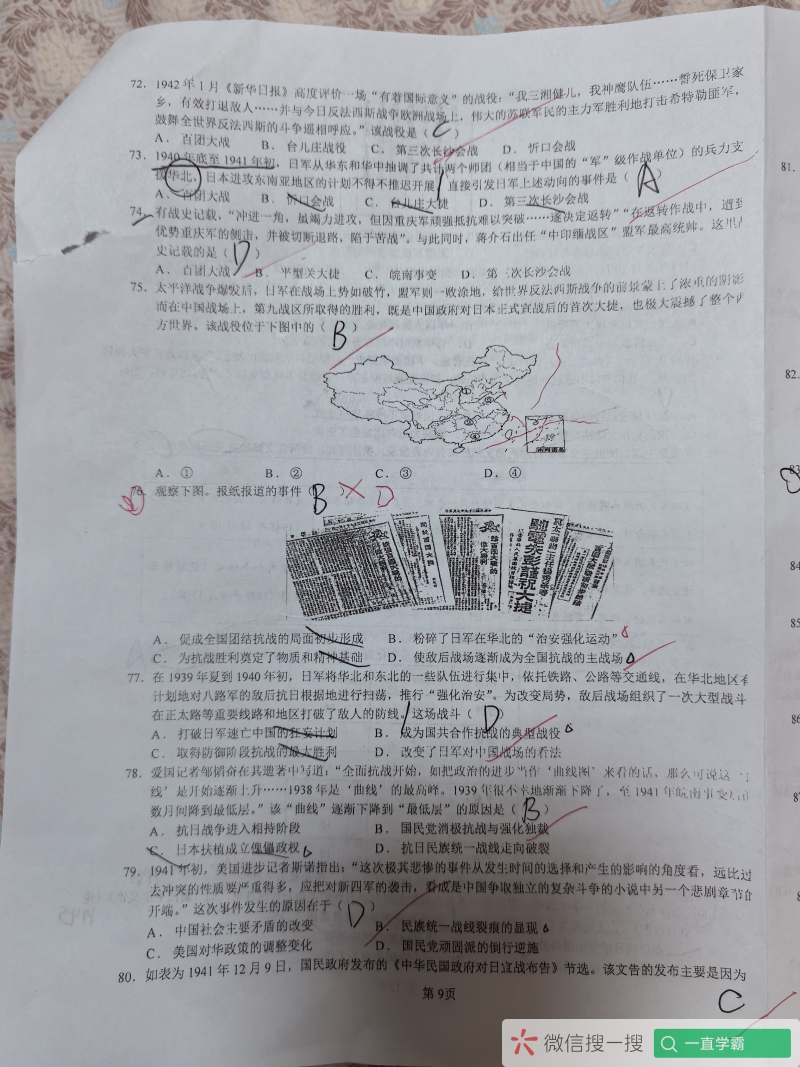 72. 1942年1月《新华日报》高度评价一场“有着国际意义”的战役：“我三湘健儿，我神鹰队伍……誓死保卫家
乡，有效打退敌人……并与今日反法西斯战争欧洲战场上，伟大的苏联军民的主力军胜利地打击希特勒匪军，
鼓舞全世界反法西斯的斗争遥相呼应。”该战役是（ C ）
A. 百团大战 B. 台儿庄战役 C. 第三次长沙会战 D. 忻口会战
73. 1940年底至1941年初，日军从华东和华中抽调了共计两个师团（相当于中国的“军”级作战单位）的兵力支
援华北，日本进攻东南亚地区的计划不得不推迟开展，直接引发日军上述动向的事件是（ A ）
A. 百团大战 B. 忻口会战 C. 台儿庄大捷 D. 第三次长沙会战
74. 有战史记载，“冲进一角，虽竭力进攻，但因重庆军顽强抵抗难以突破……遂决定返转”“在返转作战中，遭到
优势重庆军的侧击，并被切断退路，陷于苦战”。与此同时，蒋介石出任“中印缅战区”盟军最高统帅。这里
史记载的是（ D ）
A. 百团大战 B. 平型关大捷 C. 皖南事变 D. 第三次长沙会战
75. 太平洋战争爆发后，日军在战场上势如破竹，盟军则一败涂地，给世界反法西斯战争的前景蒙上了浓重的阴影
而在中国战场上，第九战区所取得的胜利，既是中国政府对日本正式宣战后的首次大捷，也极大震撼了整个
方世界。该战役位于下图中的（ B ）
A. ① B. ② C. ③ D. ④
76. 观察下图。报纸报道的事件（ B ） × D
A. 促成全国团结抗战的局面初步形成 B. 粉碎了日军在华北的“治安强化运动”
C. 为抗战胜利奠定了物质和精神基础 D. 使敌后战场逐渐成为全国抗战的主战场
77. 在1939年夏到1940年初，日军将华北和东北的一些队伍进行集中，依托铁路、公路等交通线，在华北地区有
计划地对八路军的敌后抗日根据地进行扫荡，推行“强化治安”。为改变局势，敌后战场组织了一次大型战斗
在正太路等重要线路和地区打破了敌人的防线。这场战斗（ D ）
A. 打破日军速亡中国的狂妄计划 B. 成为国共合作抗战的典型战役
C. 取得防御阶段抗战的最大胜利 D. 改变了日军对中国战场的看法
78. 爱国记者邹韬奋在其遗著中写道：“全面抗战开始，如把政治的进步当作‘曲线图’来看的话，那么可说这一
线’是开始逐渐上升……1938年是‘曲线’的最高峰。1939年很不幸地渐渐下降了，至1941年皖南事变
数月间降到最低层。”该“曲线”逐渐下降到“最低层”的原因是（ B ）
A. 抗日战争进入相持阶段 B. 国民党消极抗战与强化独裁
C. 日本扶植成立傀儡政权 D. 抗日民族统一战线走向破裂
79. 1941年初，美国进步记者斯诺指出：“这次极其悲惨的事件从发生时间的选择和产生的影响的角度看，远比过
去冲突的性质要严重得多，应把对新四军的袭击，看成是中国争取独立的复杂斗争的小说中另一个悲剧章节的
开端。”这次事件发生的原因在于（ D ）
A. 中国社会主要矛盾的改变 B. 民族统一战线裂痕的显现
C. 美国对华政策的调整变化 D. 国民党顽固派的倒行逆施
80. 如表为1941年12月9日，国民政府发布的《中华民国政府对日宣战布告》节选。该文告的发布主要是因为
C
第9页
81.
82.
83
84
85
86
8
微信搜一搜
一直学霸